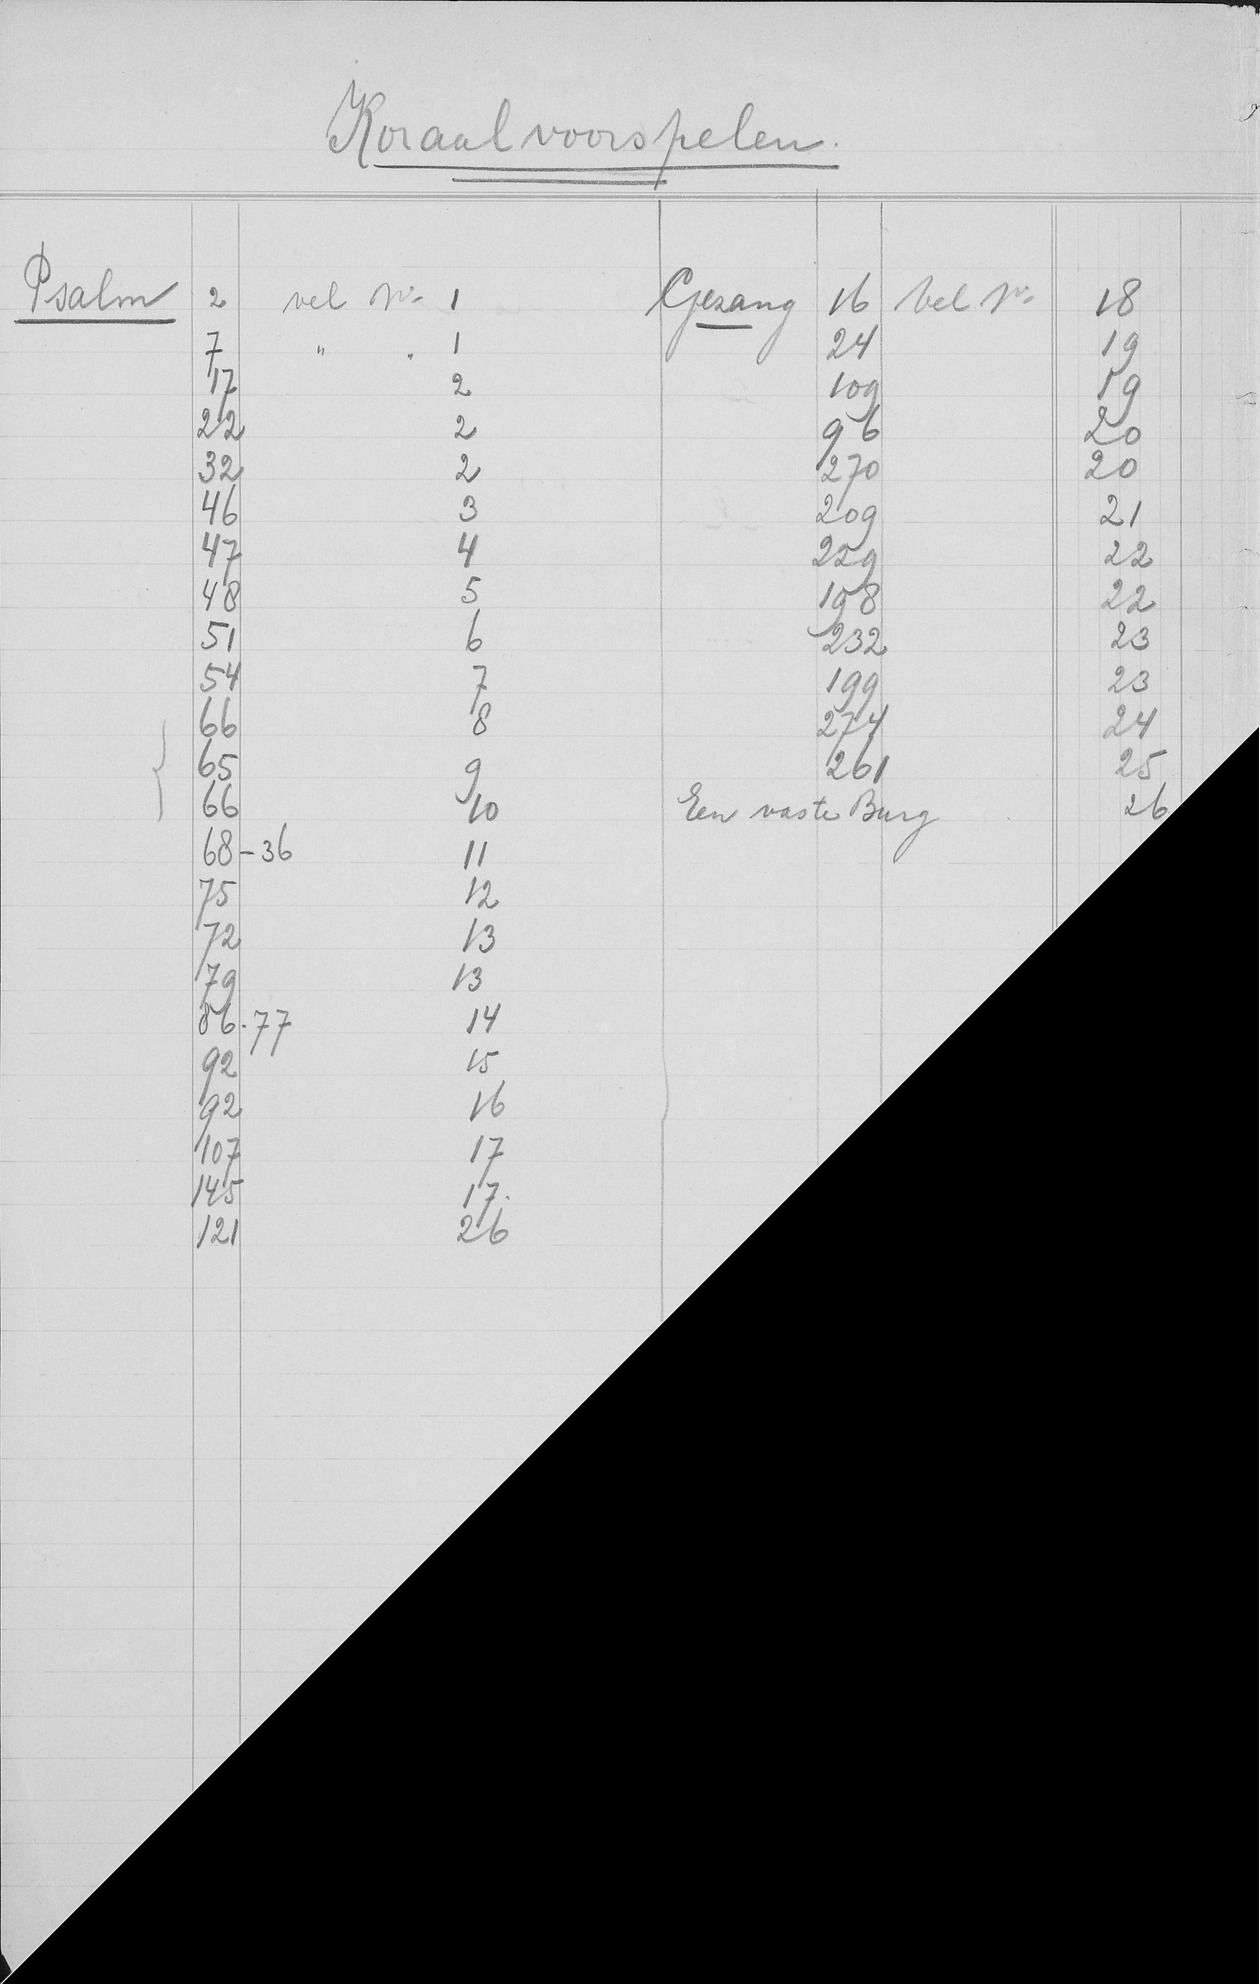 Koraalvoorspelen.
Psalm 2 vel No. 1 Gezang 16 vel No. 18
7 " " 1 24 19
17 2 109 19
22 2 96 20
32 2 270 20
46 3 209 21
47 4 229 22
48 5 198 22
51 6 232 23
54 7 199 23
66 8 274 24
65 9 261 25
66 10 Een vaste Burg 26
68-36 11
75 12
72 13
79 13
86.77 14
92 15
92 16
107 17
145 17.
121 26